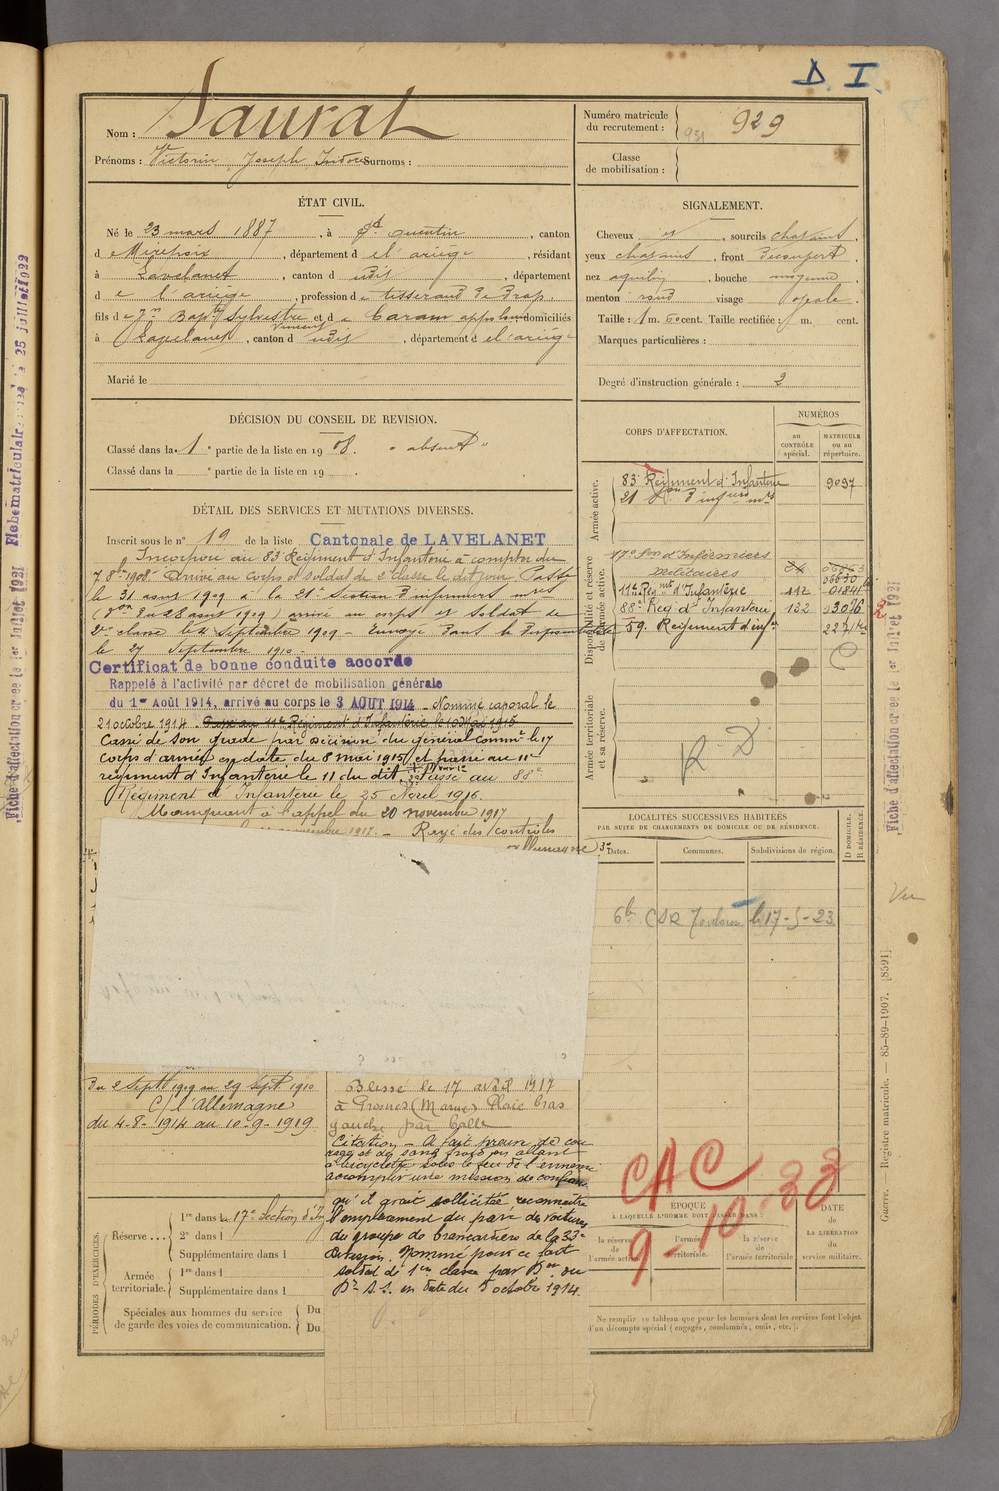 D. I.
Nom : Saurat
Prénoms : Victorin Joseph Isidore Surnoms :
Numéro matricule du recrutement : 929
931
Classe de mobilisation :
ÉTAT CIVIL.
Né le 23 mars 1887, à St Quentin, canton
d e Mirepoix, département d e l'ariège, résidant
à Lavelanet, canton d udit, département
d e l'ariège, profession d e tisserand de drap.
fils d e Jn Bapte Sylvestre et d e Caram appolonie domiciliés
Vincent
à Lavelanet, canton d udit, département d e l'ariège
Marié le
SIGNALEMENT.
Cheveux et, sourcils chatains,
yeux chatains, front découvert,
nez aquilin, bouche moyenne,
menton rond visage ovale.
Taille : 1 m. 60 cent. Taille rectifiée : 1 m. cent.
Marques particulières :
Degré d'instruction générale : 2
DÉCISION DU CONSEIL DE REVISION.
Classé dans la 1e partie de la liste en 1908. "absent"
Classé dans la e partie de la liste en 19 .
DÉTAIL DES SERVICES ET MUTATIONS DIVERSES.
Inscrit sous le n° 19 de la liste Cantonale de LAVELANET
Incorporé au 83e Régiment d'Infanterie à compter du
7 8bre 1908. Arrivé au corps et soldat de 2e classe le dit jour. Passé
le 31 aout 1909 à la 21e Section d'infirmiers mres
(Don du 28 aout 1909) arrivé au corps et soldat de
2e classe le 2 Septembre 1909 - Envoyé dans la disponibilité
le 27 Septembre 1910
Certificat de bonne conduite accordé
Rappelé à l'activité par décret de mobilisation générale
du 1er Août 1914, arrivé au corps le 3 AOUT 1914 - Nommé caporal le
21 octobre 1914. Passé au 11e Régiment d'Infanterie le 10 Mai 1915
Cassé de son grade par décision du général commt le 17
corps d'armée en date du 8 mai 1915 et passé au 11e
régiment d'Infanterie le 11 du dit. Passé au 88e
Régiment d'Infanterie le 25 Avril 1916.
Manquant à l'appel du 20 novembre 1917
novembre 1917. - Rayé des contrôles
allemagne
CORPS D'AFFECTATION.
NUMÉROS
au CONTRÔLE spécial.
MATRICULE ou au répertoire.
Armée active.
83e Régiment d'Infanterie 9097
21 Son d'infiers mres
Disponibilité et réserve de l'armée active.
17e Son d'Infirmiers
militaires
11e Regmt d'Infanterie 112 01841
88e Reg d'Infanterie 132 03026
59. Regiment d'infie
Armée territoriale et sa réserve.
R D
LOCALITÉS SUCCESSIVES HABITÉES
PAR SUITE DE CHANGEMENTS DE DOMICILE OU DE RÉSIDENCE.
Dates. Communes. Subdivisions de région. D DOMICILE. R RÉSIDENCE.
6e CSR Toulouse le 17-5-23
Du 2 Septbre 1909 au 29 Sept. 1910
C/ l'Allemagne
du 4-8-1914 au 10-9-1919
Blessé le 17 avril 1917
à Prosnes (Marne) Plaie bras
gauche par balle
Citation - A fait preuve de cou
rage et de sang froid en allant
à bicyclette sous le feu de l'ennemi
accomplir une mission de confiance
qu'il avait sollicitée reconnaitre
l'emplacement du parc de voitures
du groupe de brancardiers de la 33e
Division. Nommé pour ce fait
soldat de 1ere classe par Don du
Dr S.S. en date du 5 octobre 1914
PÉRIODES D'EXERCICES.
Réserve... 1re dans la 17e Section d'In
2e dans l
Supplémentaire dans l
Armée territoriale. 1re dans l
Supplémentaire dans l
Spéciales aux hommes du service Du
de garde des voies de communication. Du
CAC
9-10-33
ÉPOQUE
À LAQUELLE L'HOMME DOIT PASSER DANS :
la réserve de l'armée active.
l'armée territoriale.
la réserve de l'armée territoriale
DATE DE LA LIBÉRATION du service militaire.
Ne remplir ce tableau que pour les hommes dont les services font l'objet
d'un décompte spécial (engagés, condamnés, omis, etc.).
Fiche d'affectation créée le 1er Juillet 1921
Fiche matriculaire créée le 25 juillet 1922
Fiche d'affectation créée le 1er Juillet 1921
Vu
Guerre. — Registre matricule. — 85-89-1907. [8591]